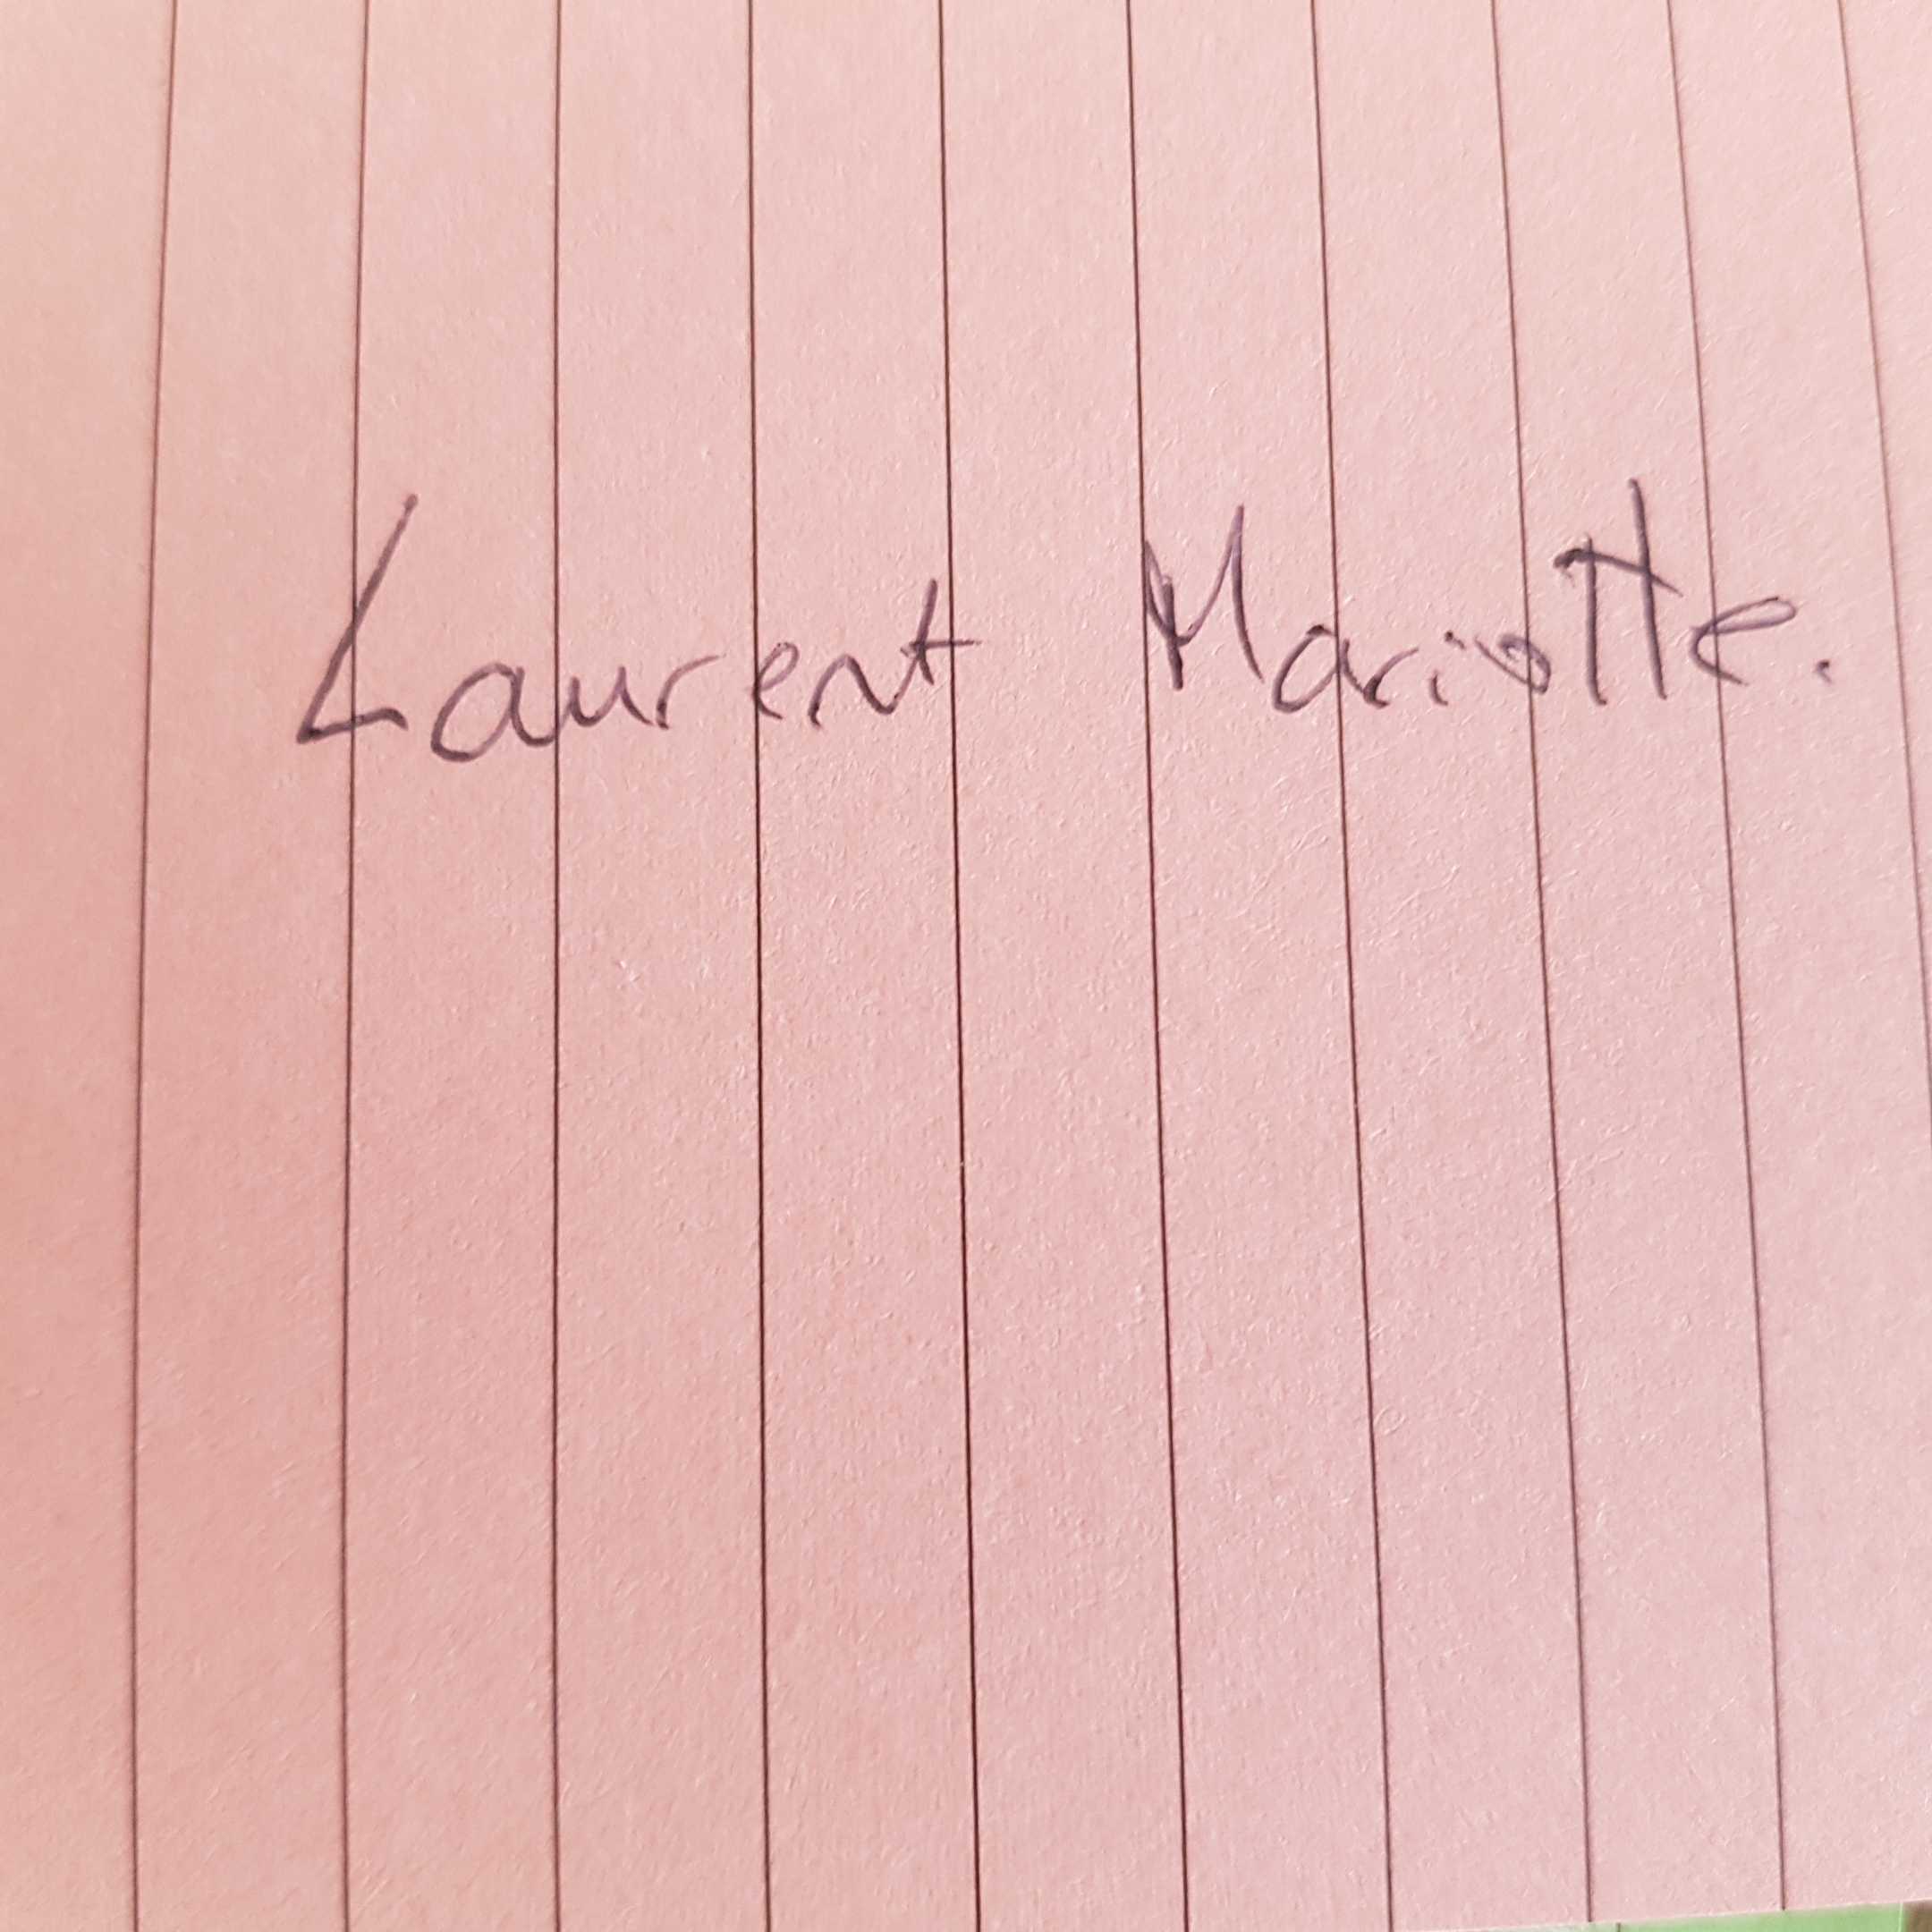 Laurent Mariotte.